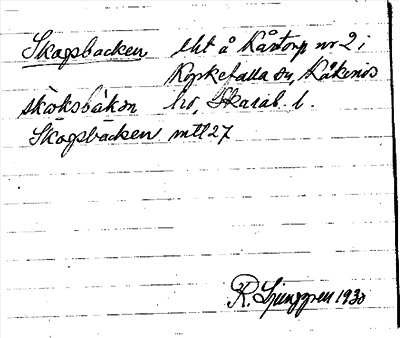 Skogsbacken lht å Kåstorp nr 2 i
Kyrkefalla sn, Kåkinds
skoksbakən hd, Skarab. l.
Skogsbacken mtl 27
R. Ljunggren 1930